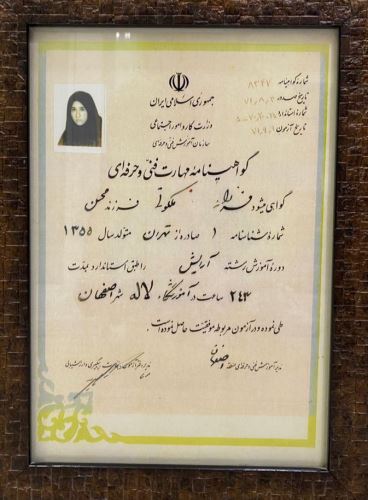 شماره گواهینامه ۸۳۴۷
تاریخ صدور ۷۱/۸/۳
شماره استاندارد
تاریخ آزمون ۷۱/۶/۱
جمهوری اسلامی ایران
وزارت کار و امور اجتماعی
سازمان آموزش فنی و حرفه‌ای
گواهینامه مهارت فنی و حرفه‌ای
گواهی میشود ملکوتی فرزند محسن
شماره شناسنامه ۱ صادره از تهران متولد سال ۱۳۵۵
دوره آموزش رشته آرایش را طبق استاندارد بمدت
۲۴۳ ساعت در آموزشگاه لاله شهر اصفهان
طی نموده و در آزمون مربوطه موفقیت حاصل نموده است.
مدیر آموزش فنی و حرفه‌ای منطقه اصفهان